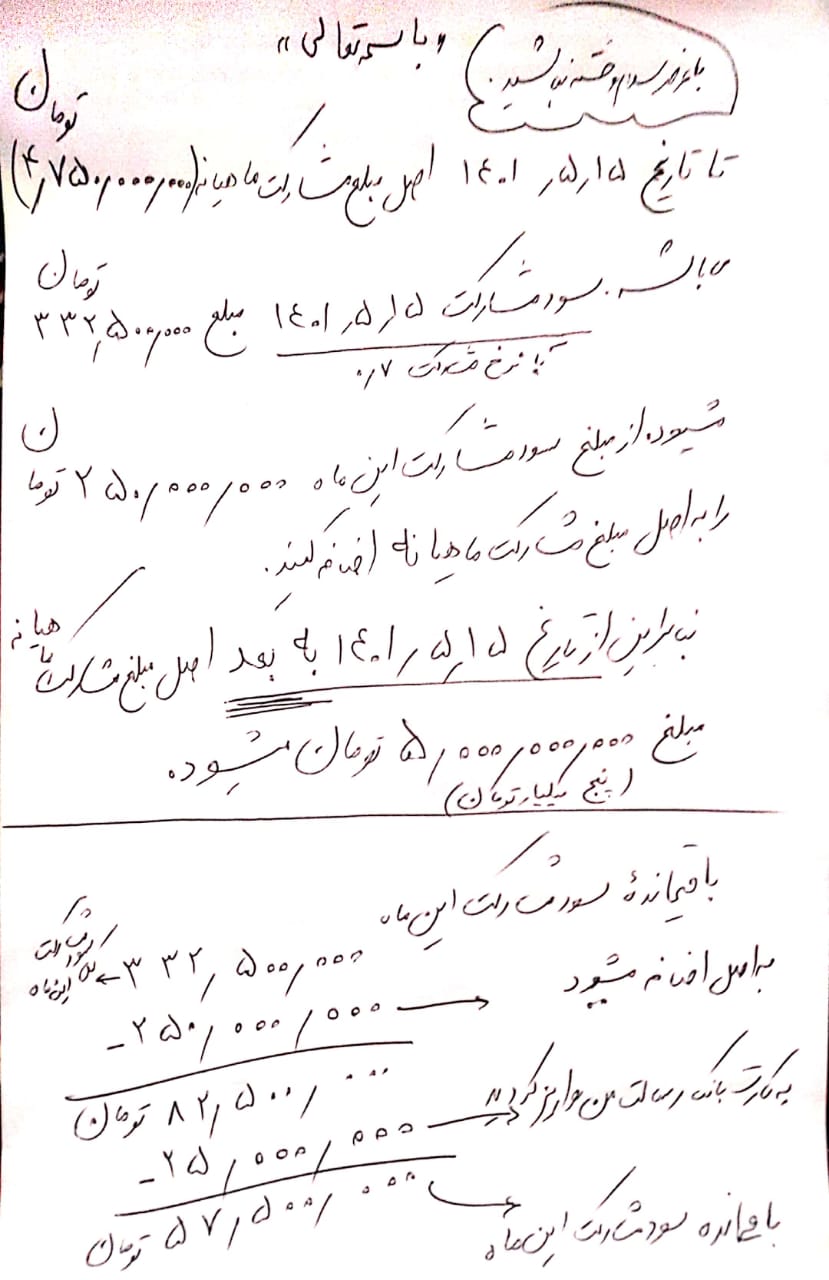 «باسمه تعالی»
با عرض سلام و خسته نباشید.
تا تاریخ ۱۴۰۱/۵/۱۵ اصل مبلغ مشارکت ماهیانه (۴/۷۵۰/۰۰۰/۰۰۰) تومان
می باشد. سود مشارکت ۱۴۰۱/۵/۱۵ مبلغ ۳۳۲/۵۰۰/۰۰۰ تومان
با نرخ مشارکت ۰/۷
میشود، از مبلغ سود مشارکت این ماه ۲۵۰/۰۰۰/۰۰۰ تومان
را به اصل مبلغ مشارکت ماهیانه اضافه کنید.
بنابراین از تاریخ ۱۴۰۱/۵/۱۵ به بعد اصل مبلغ مشارکت ماهیانه
مبلغ ۵/۰۰۰/۰۰۰/۰۰۰ تومان میشود.
(پنج میلیارد تومان)
باقیماندهٔ سود مشارکت این ماه
۳۳۲/۵۰۰/۰۰۰ ← سود مشارکت این ماه
-۲۵۰/۰۰۰/۰۰۰ → به اصل اضافه میشود
۸۲/۵۰۰/۰۰۰ تومان
-۲۵/۰۰۰/۰۰۰ → به کارت بانک رسالت من واریز گردید
۵۷/۵۰۰/۰۰۰ تومان → باقیمانده سود مشارکت این ماه